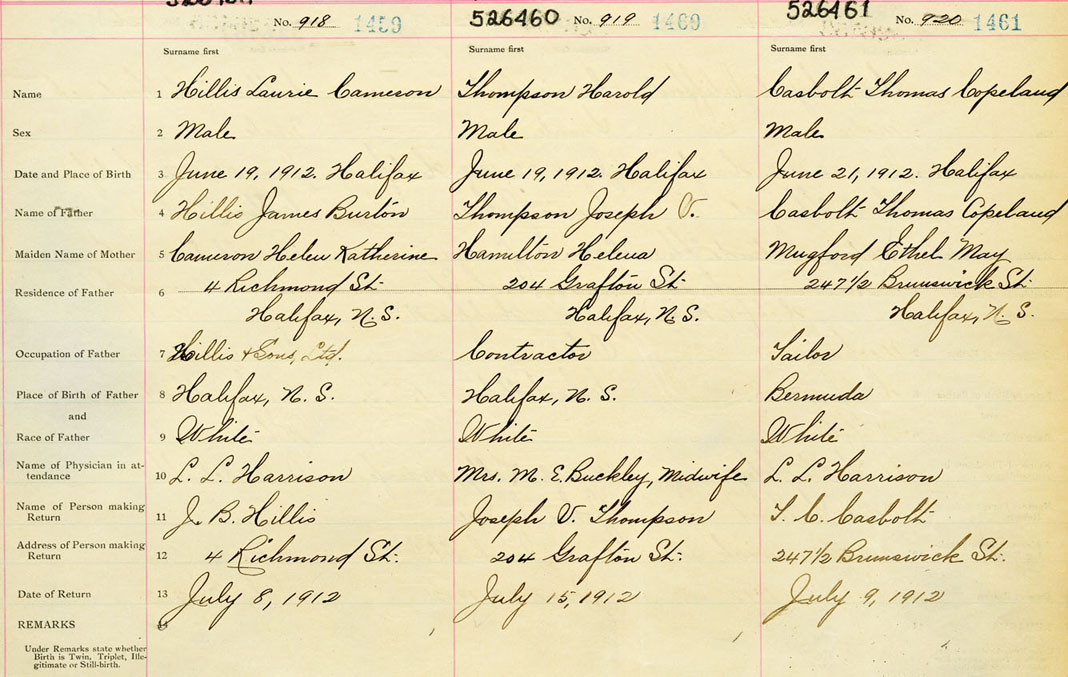 No. 918 1459 526460 No. 919 1460 526461 No. 920 1461
Surname first Surname first Surname first
Name 1 Hillis Laurie Cameron Thompson Harold Casbolt Thomas Copeland
Sex 2 Male Male Male
Date and Place of Birth 3 June 19, 1912. Halifax June 19, 1912. Halifax June 21, 1912. Halifax
Name of Father 4 Hillis James Burton Thompson Joseph V. Casbolt Thomas Copeland
Maiden Name of Mother 5 Cameron Helen Katherine Hamilton Helena Mugford Ethel May
Residence of Father 6 4 Richmond St. 204 Grafton St. 247 1/2 Brunswick St.
Halifax, N.S. Halifax, N.S. Halifax, N.S.
Occupation of Father 7 Hillis & Sons, Ltd. Contractor Tailor
Place of Birth of Father 8 Halifax, N.S. Halifax, N.S. Bermuda
and
Race of Father 9 White White White
Name of Physician in at-
tendance 10 L. L. Harrison Mrs. M. E. Buckley, Midwife L. L. Harrison
Name of Person making
Return 11 J. B. Hillis Joseph V. Thompson T. C. Casbolt
Address of Person making
Return 12 4 Richmond St. 204 Grafton St. 247 1/2 Brunswick St.
Date of Return 13 July 8, 1912 July 15, 1912 July 9, 1912
REMARKS 14
Under Remarks state whether
Birth is Twin, Triplet, Ille-
gitimate or Still-birth.